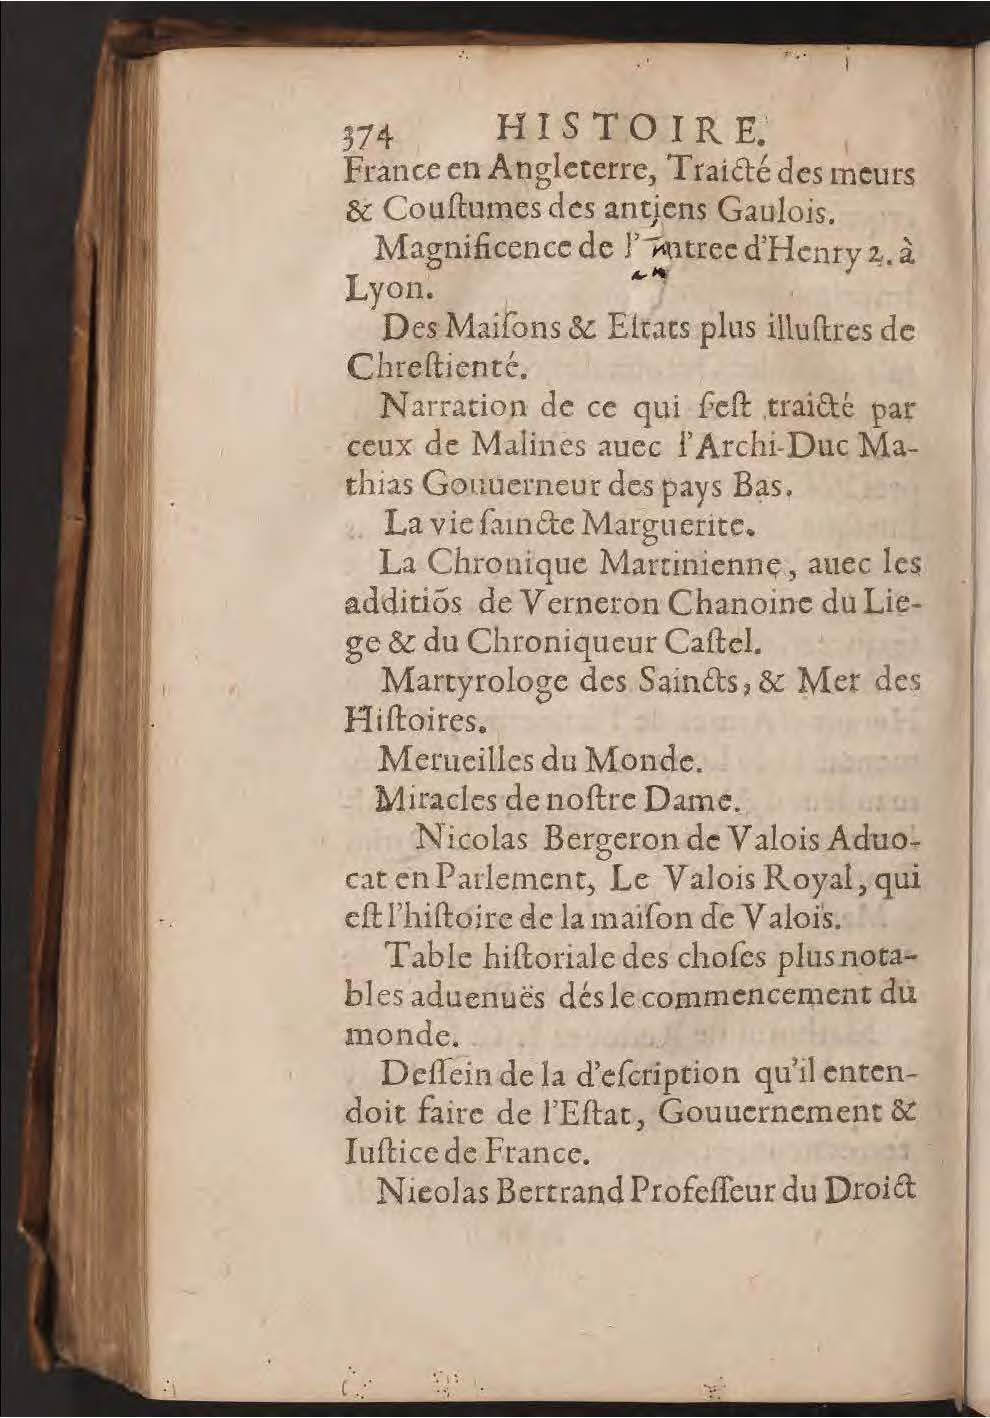 374 HISTOIRE.
France en Angleterre, Traicté des meurs
& Couſtumes des antiens Gaulois.
Magnificence de l'entree d'Henry 2. à
en
Lyon.
Des Maiſons & Eſtats plus illuſtres de
Chreſtienté.
Narration de ce qui ſ'eſt traicté par
ceux de Malines auec l'Archi-Duc Ma-
thias Gouuerneur des pays Bas.
La vie ſaincte Marguerite.
La Chronique Martinienne, auec les
additiōs de Verneron Chanoine du Lie-
ge & du Chroniqueur Caſtel.
Martyrologe des Saincts, & Mer des
Hiſtoires.
Merueilles du Monde.
Miracles de noſtre Dame.
Nicolas Bergeron de Valois Aduo-
cat en Parlement, Le Valois Royal, qui
eſt l'hiſtoire de la maiſon de Valois.
Table hiſtoriale des choſes plus nota-
bles aduenuës dés le commencement du
monde.
Deſſein de la d'eſcription qu'il enten-
doit faire de l'Eſtat, Gouuernement &
Iuſtice de France.
Nicolas Bertrand Profeſſeur du Droict